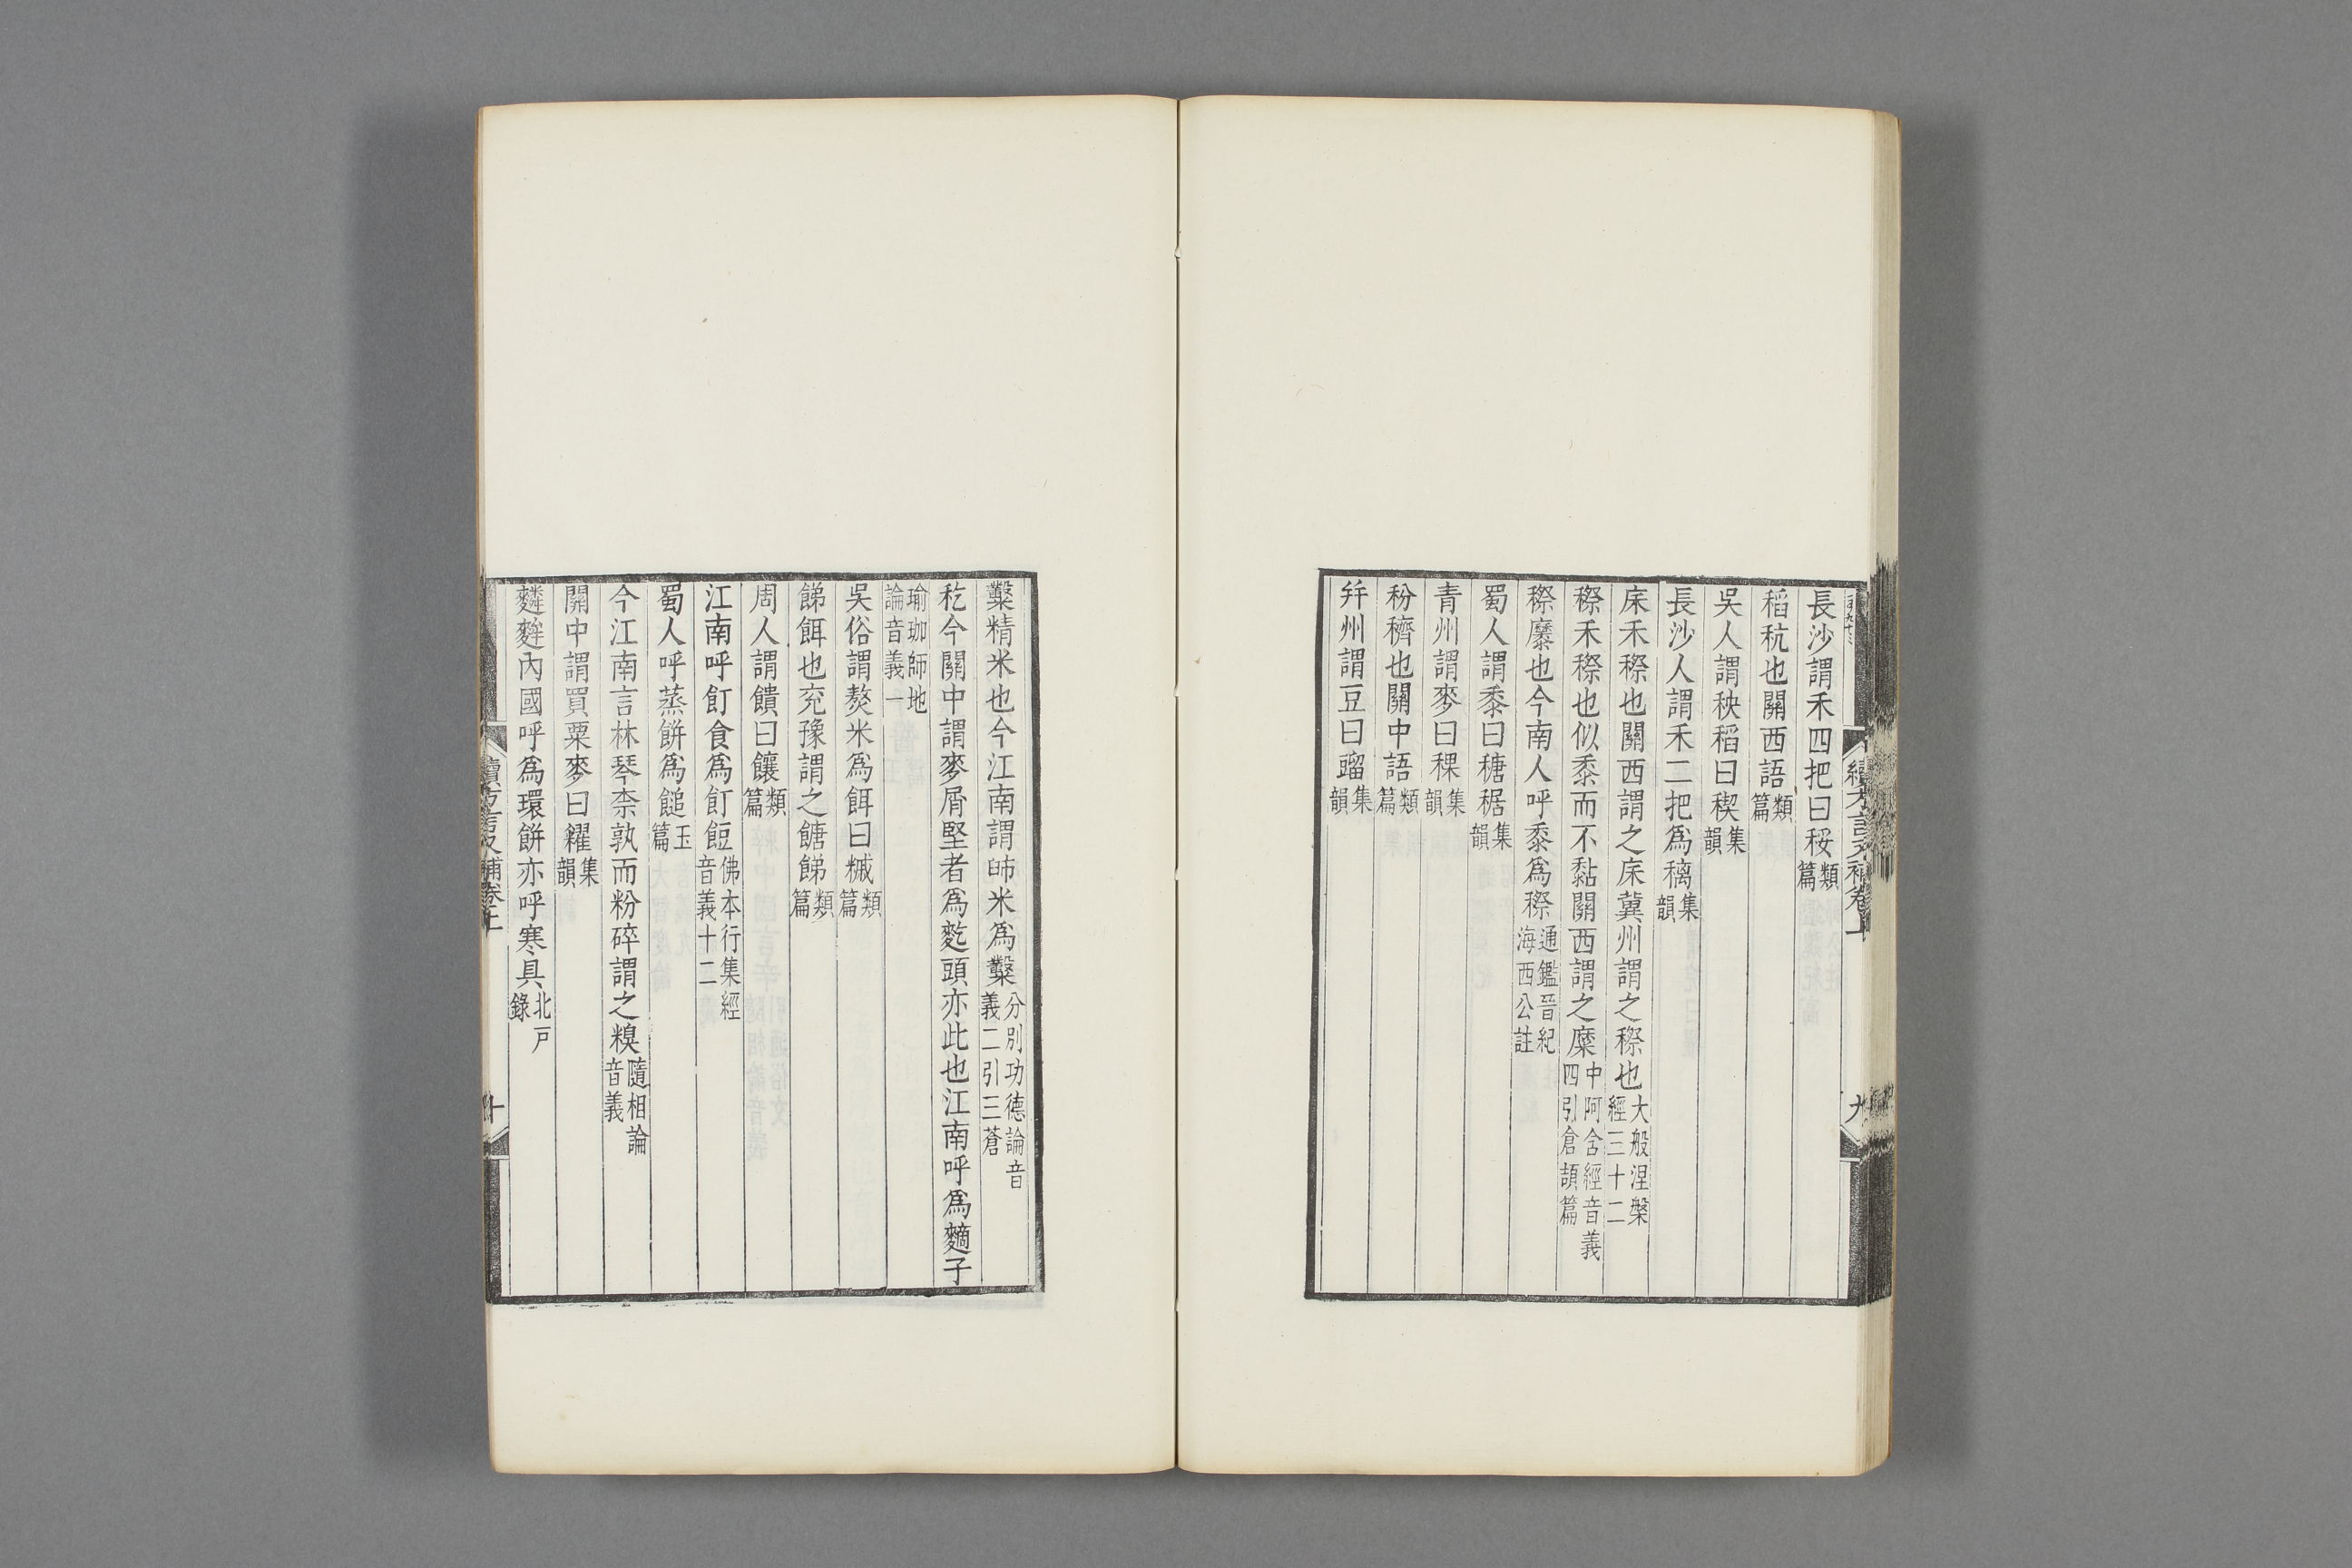 長沙謂禾四把曰䅗類篇
稻秔也關西語類篇
吳人謂秧稻曰稧集韻
長沙人謂禾二把爲穲集韻
床禾穄也關西謂之床冀州謂之穄也大般涅槃經三十二
穄禾穄也似黍而不黏關西謂之糜中阿含經音義四引倉頡篇
穄穈也今南人呼黍爲穄通鑑晉紀海西公註
蜀人謂黍曰䅯䅕集韻
青州謂麥曰稞集韻
秎穧也關中語類篇
幷州謂豆曰䝀集韻
續方言又補卷上
九
糳精米也今江南謂師米爲糳分別功德論音義二引三蒼
籺今關中謂麥屑堅者爲麧頭亦此也江南呼爲麱子
瑜珈師地論音義一
吳俗謂熬米爲餌曰䊝類篇
餯餌也兖豫謂之餹餯類篇
周人謂饋曰饟類篇
江南呼飣食爲飣餖佛本行集經音義十二
蜀人呼蒸餅爲䭔玉篇
今江南言林琴柰孰而粉碎謂之糗隨相論音義
關中謂買粟麥曰糴集韻
䴼䴶內國呼爲環餅亦呼寒具北戸錄
續方言又補卷上
十